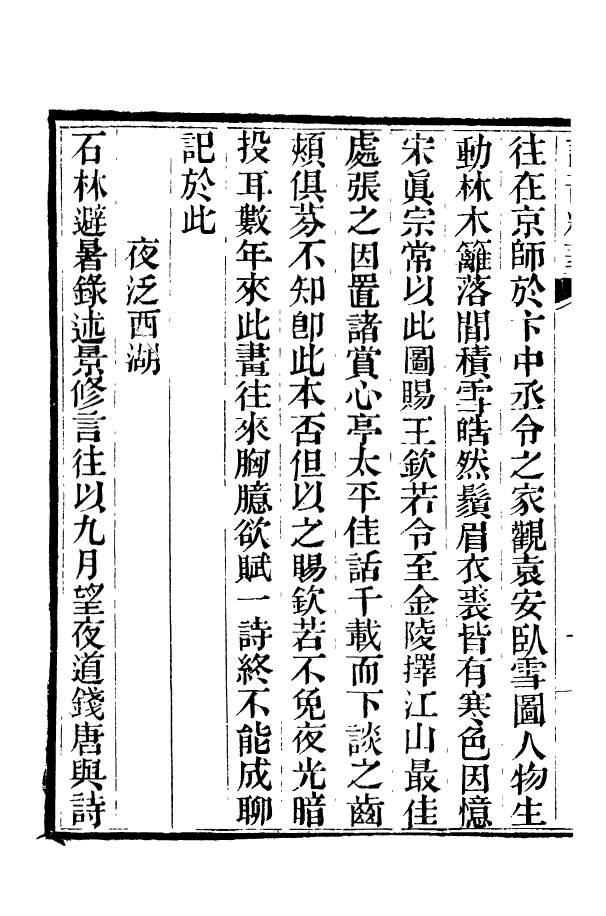 往在京師於卞中丞令之家觀袁安臥雪圖人物生
動林木籬落閒積雪皓然鬚眉衣裘皆有寒色因憶
宋眞宗常以此圖賜王欽若令至金陵擇江山最佳
處張之因置諸賞心亭太平佳話千載而下談之齒
頰俱芬不知卽此本否但以之賜欽若不免夜光暗
投耳數年來此畫往來胸臆欲賦一詩終不能成聊
記於此
夜泛西湖
石林避暑錄述景修言往以九月望夜道錢唐與詩